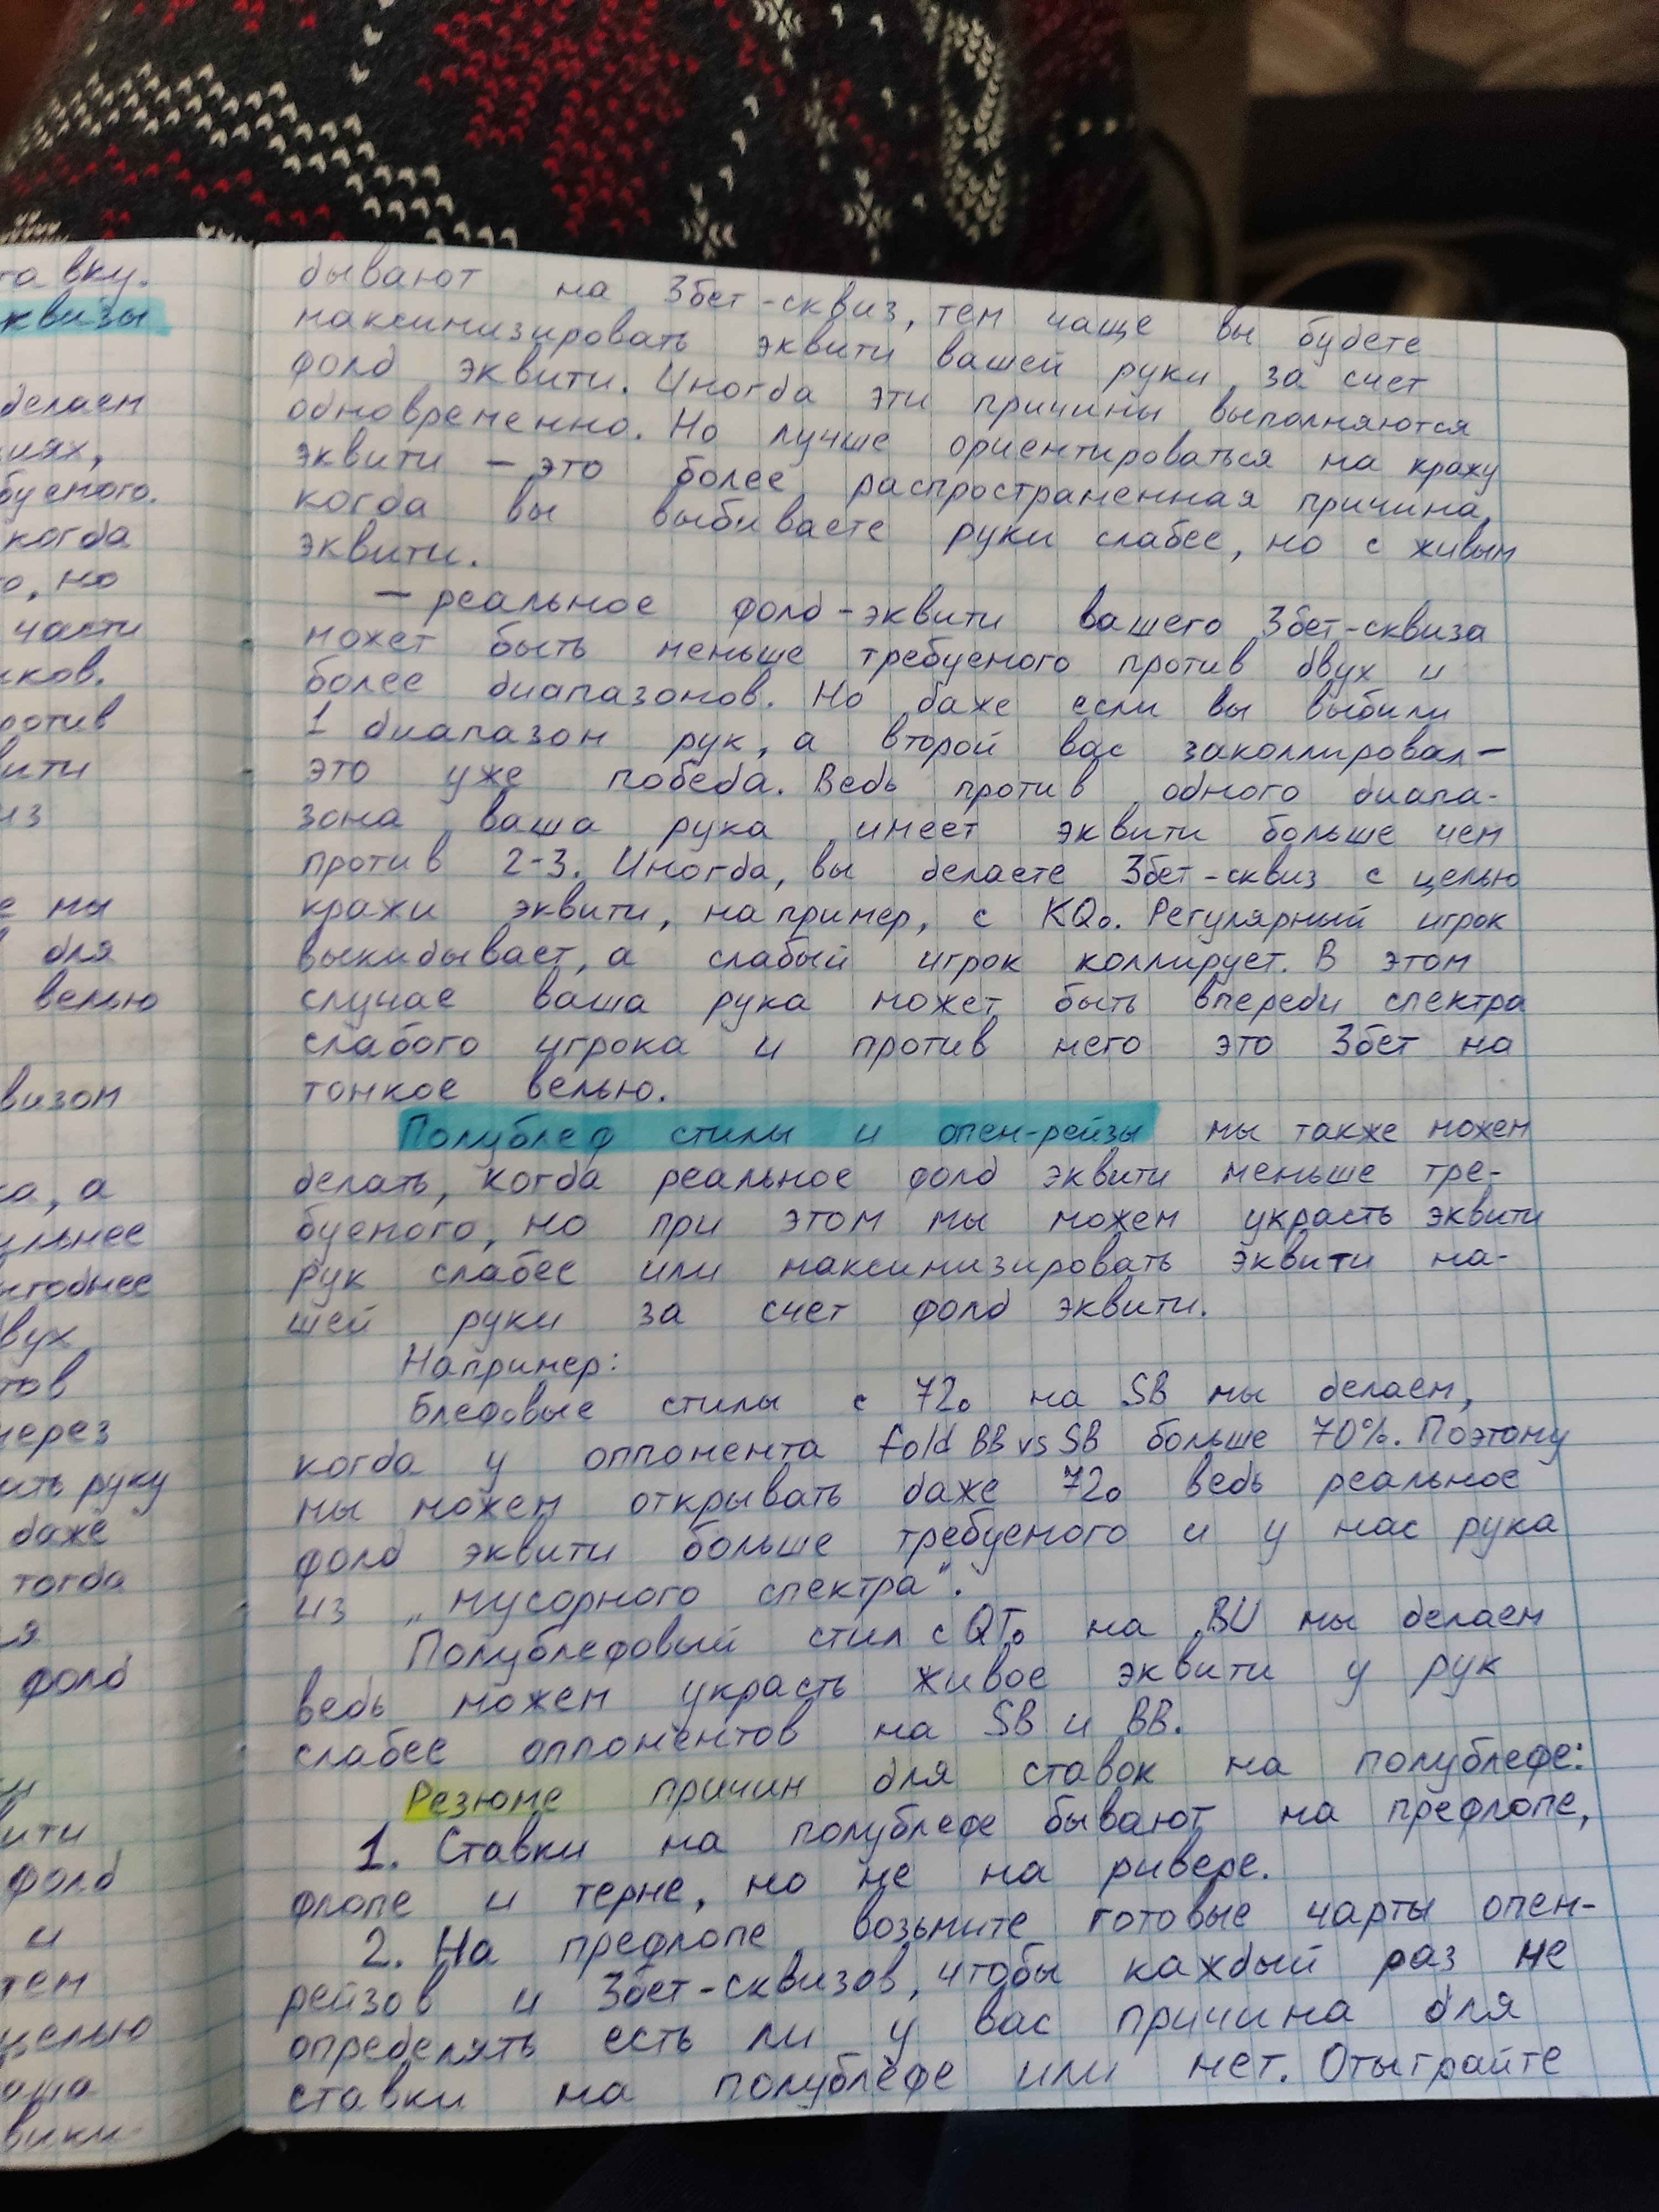 тавку.
квизы
делаем
иях,
буемого.
когда
о, но
части
иков.
ротив
ити
из
е мы
для
велью
визом
ка, а
ильнее
ыгоднее
двух
тов
через
ить руку
даже
тогда
ия
фолд
ити
фолд
и
тем
целью
аша
вики-
бывают на 3бет-сквиз, тем чаще вы будете
максимизировать эквити вашей руки, за счет
фолд эквити. Иногда эти причины выполняются
одновременно. Но лучше ориентироваться на кражу
эквити – это более распространенная причина,
когда вы выбиваете руки слабее, но с живым
эквити.
– реальное фолд-эквити вашего 3бет-сквиза
может быть меньше требуемого против двух и
более диапазонов. Но даже если вы выбили
1 диапазон рук, а второй вас заколлировал –
это уже победа. Ведь против одного диапа-
зона ваша рука имеет эквити больше чем
против 2-3. Иногда, вы делаете 3бет-сквиз с целью
кражи эквити, например, с KQo. Регулярный игрок
выкидывает, а слабый игрок коллирует. В этом
случае ваша рука может быть впереди спектра
слабого игрока и против него это 3бет на
тонкое велью.
Полублеф стилы и опен-рейзы мы также можем
делать, когда реальное фолд эквити меньше тре-
буемого, но при этом мы можем украсть эквити
рук слабее или максимизировать эквити на-
шей руки за счет фолд эквити.
Например:
Блефовые стилы с 72o на SB мы делаем,
когда у оппонента fold BB vs SB больше 70%. Поэтому
мы можем открывать даже 72o ведь реальное
фолд эквити больше требуемого и у нас рука
из „мусорного спектра“.
Полублефовый стил с QTo на BU мы делаем
ведь можем украсть живое эквити у рук
слабее оппонентов на SB и BB.
Резюме причин для ставок на полублефе:
1. Ставки на полублефе бывают на префлопе,
флопе и терне, но не на ривере.
2. На префлопе возьмите готовые чарты опен-
рейзов и 3бет-сквизов, чтобы каждый раз не
определять есть ли у вас причина для
ставки на полублефе или нет. Отыграйте